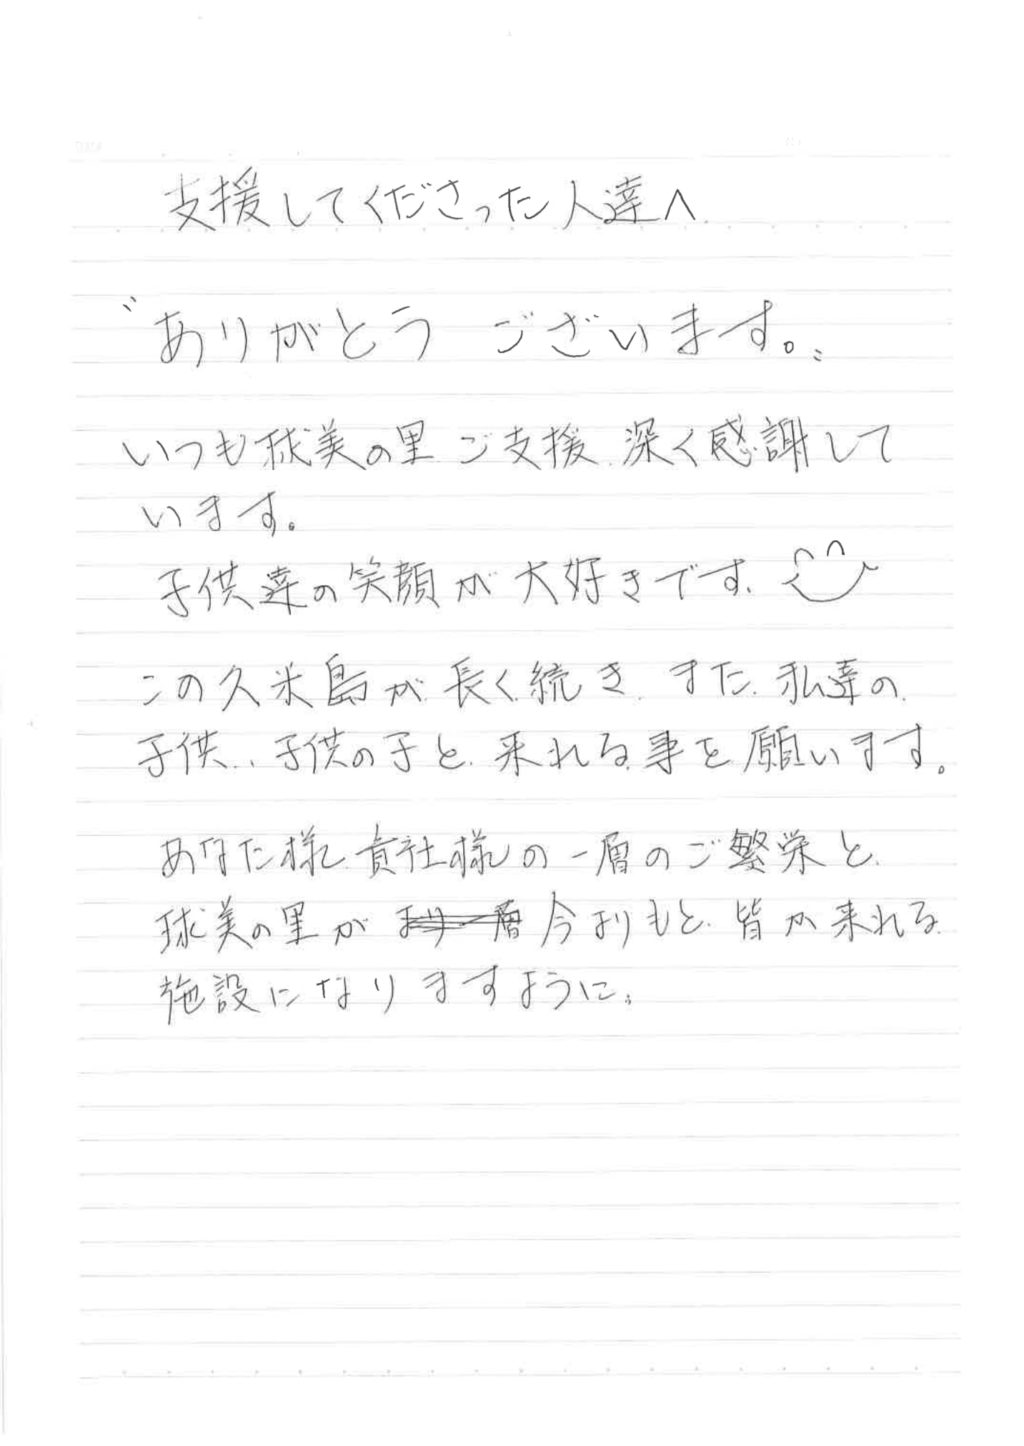 支援してくださった人達へ
〝ありがとう ございます。〟
いつも球美の里 ご支援、深く感謝して
います。
子供達の笑顔が大好きです、
この久米島が、長く続き、また、私達の、
子供、、子供の子と、来れる、事を願います。
あなた様、貴社様の一層のご繁栄と、
球美の里が 今よりもと、皆が来れる、
施設になりますように。